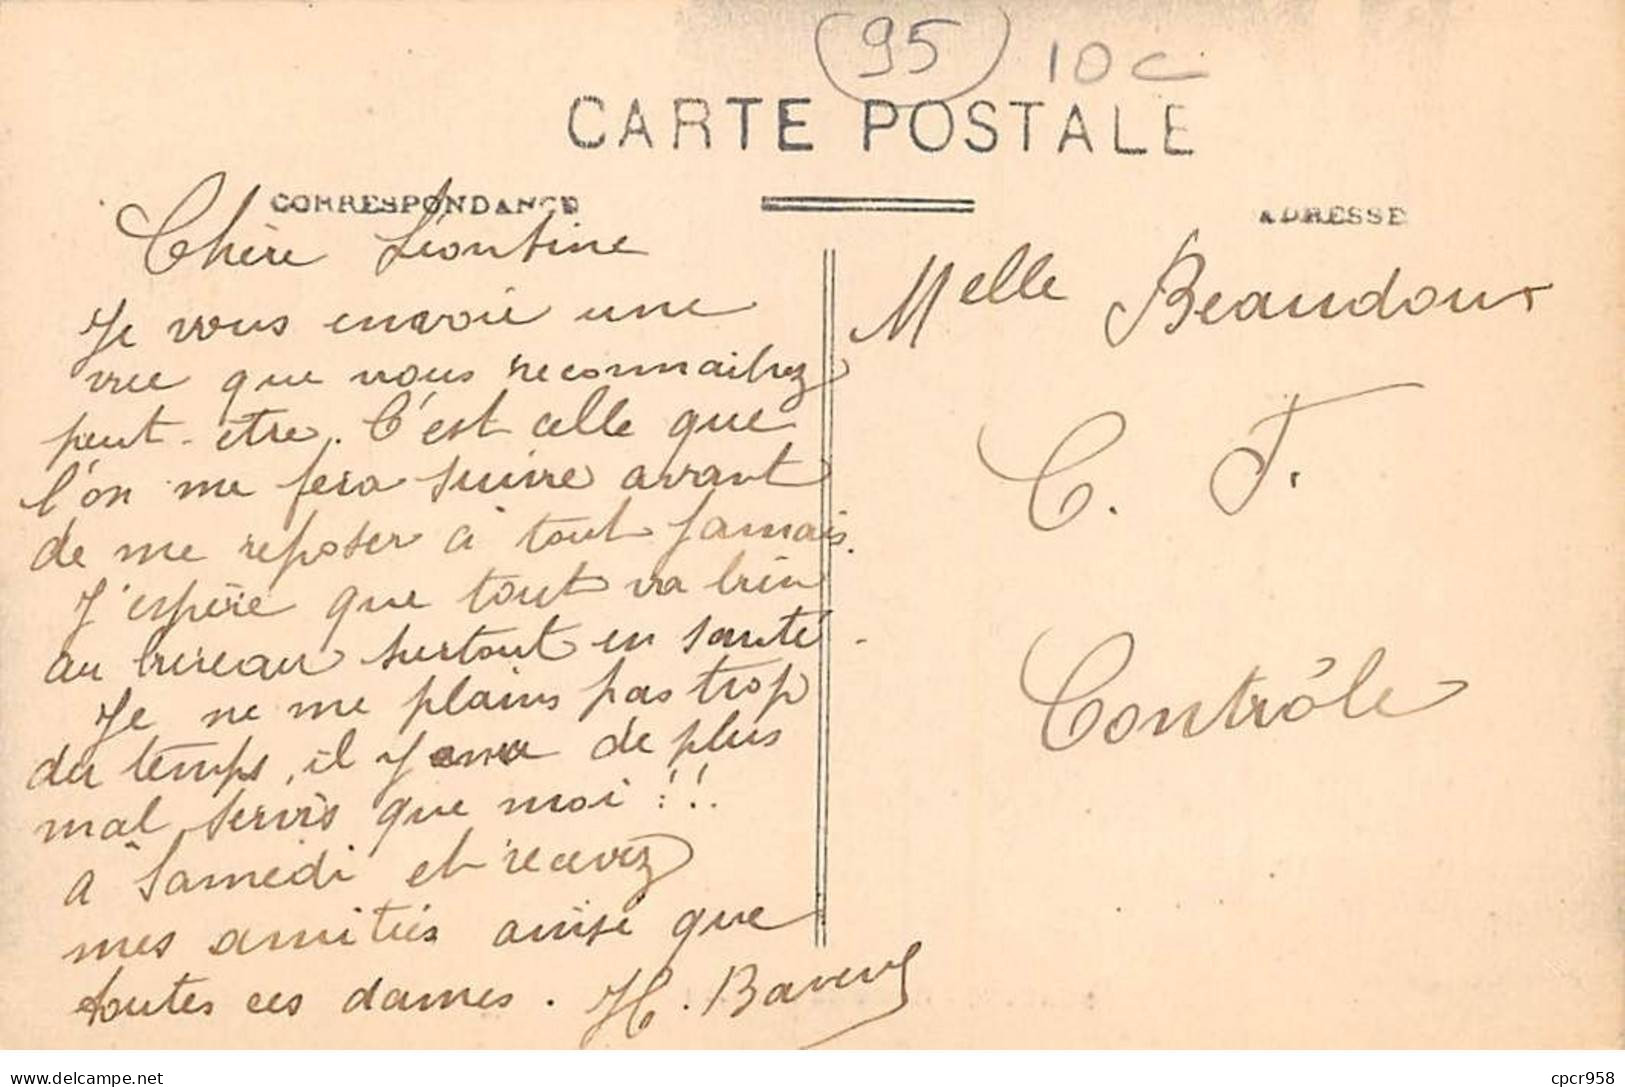 95 10c
CARTE POSTALE
CORRESPONDANCE
ADRESSE
Chère Léontine
Je vous envoie une
vue que vous reconnaitrez
peut-etre. C'est celle que
l'on me fera suivre avant
de me reposer à tout jamais.
J'espère que tout va bien
au bureau surtout en santé.
Je ne me plains pas trop
du temps, il y en a de plus
mal servis que moi!!!
a Samedi et recevez
mes amitiés ainsi que
toutes ces dames. H.
Melle Beaudoux
C. F.
Contrôle
delcampe.net
cpcr958